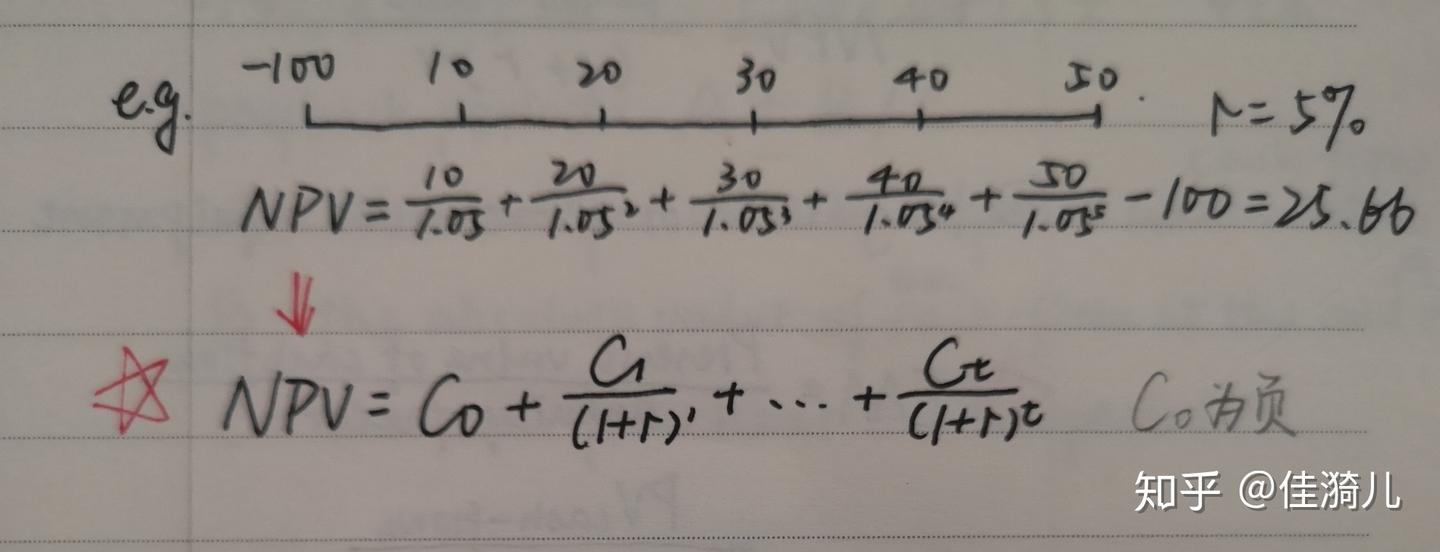 -100 10 20 30 40 50
e.g. r=5%
NPV = 10/1.05 + 20/1.05² + 30/1.05³ + 40/1.05⁴ + 50/1.05⁵ - 100 = 25.66
⇓
☆ NPV = C₀ + C₁/(1+r)¹ + ... + Cₜ/(1+r)ᵗ C₀为负
知乎 @佳漪儿